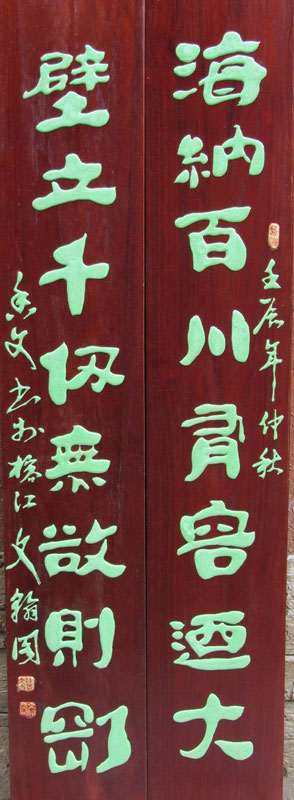 海納百川有容迺大
壬辰年仲秋
壁立千仞無欲則剛
文书於榕江文翰园